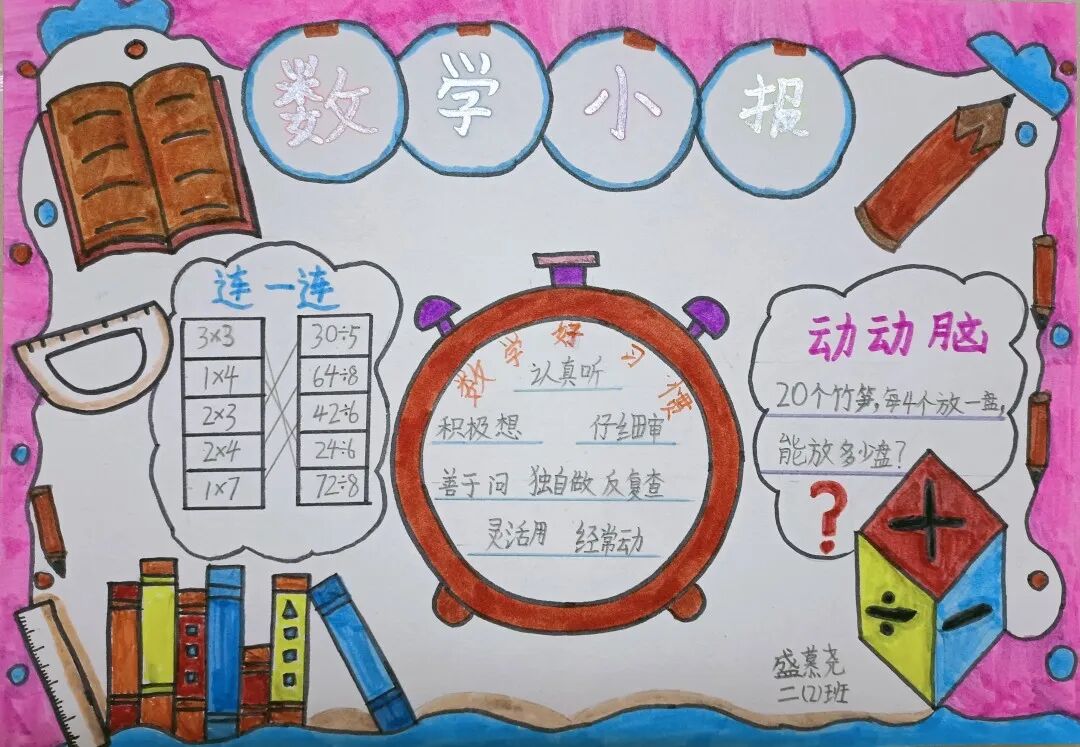 数学小报
连一连
3×3 30÷5
1×4 64÷8
2×3 42÷6
2×4 24÷6
1×7 72÷8
数学好习惯
认真听
积极想 仔细审
善于问 独自做 反复查
灵活用 经常动
动动脑
20个竹笋,每4个放一盘,
能放多少盘?
?
+
÷ −
盛慕尧
二(2)班